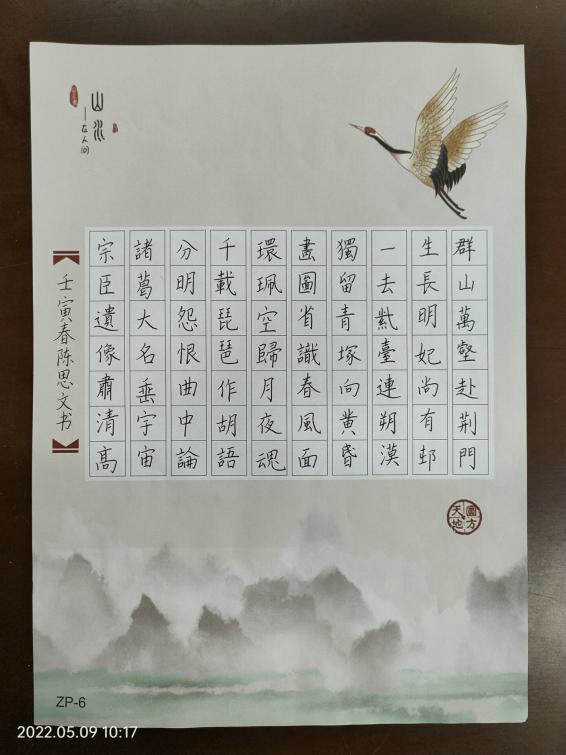 山水
在人间
群山萬壑赴荆門
生長明妃尚有邨
一去紫臺連朔漠
獨留青塚向黄昏
畵圖省識春風面
環珮空歸月夜魂
千載琵琶作胡語
分明怨恨曲中論
諸葛大名垂宇宙
宗臣遺像肅清高
壬寅春陈思文书
天地
圓方
ZP-6
2022.05.09 10:17